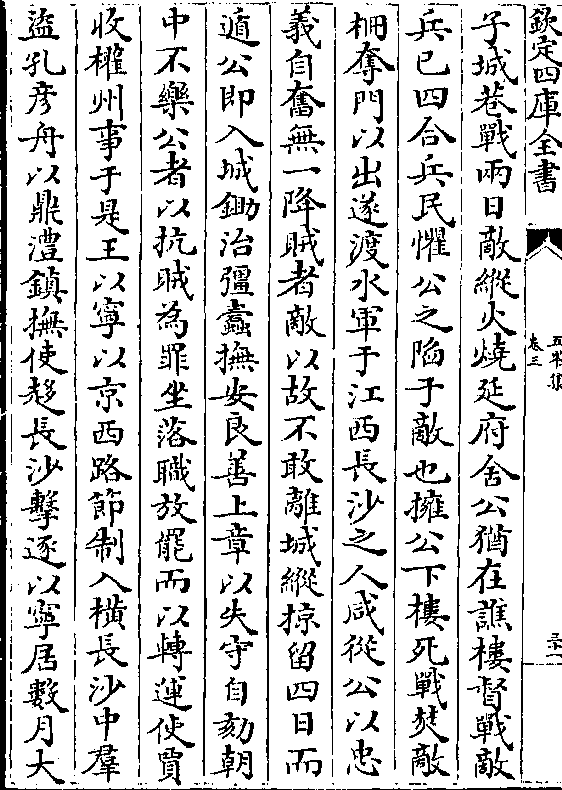 欽定四庫全書
五峯集
卷三
三十一
子城巷戰兩日敵縱火燒延府舍公猶在譙樓督戰敵
兵已四合兵民懼公之陷于敵也擁公下樓死戰焚敵
栅奪門以出遂渡水軍于江西長沙之人咸從公以忠
義自奮無一降賊者敵以故不敢離城縱掠留四日而
遁公即入城鋤治彊蠧撫安良善上章以失守自刻朝
中不樂公者以抗賊為罪坐落職放罷而以轉運使賈
收權州事于是王以寧以京西路節制入橫長沙中羣
盜孔彦舟以鼎澧鎮撫使趍長沙擊逐以寧居數月大